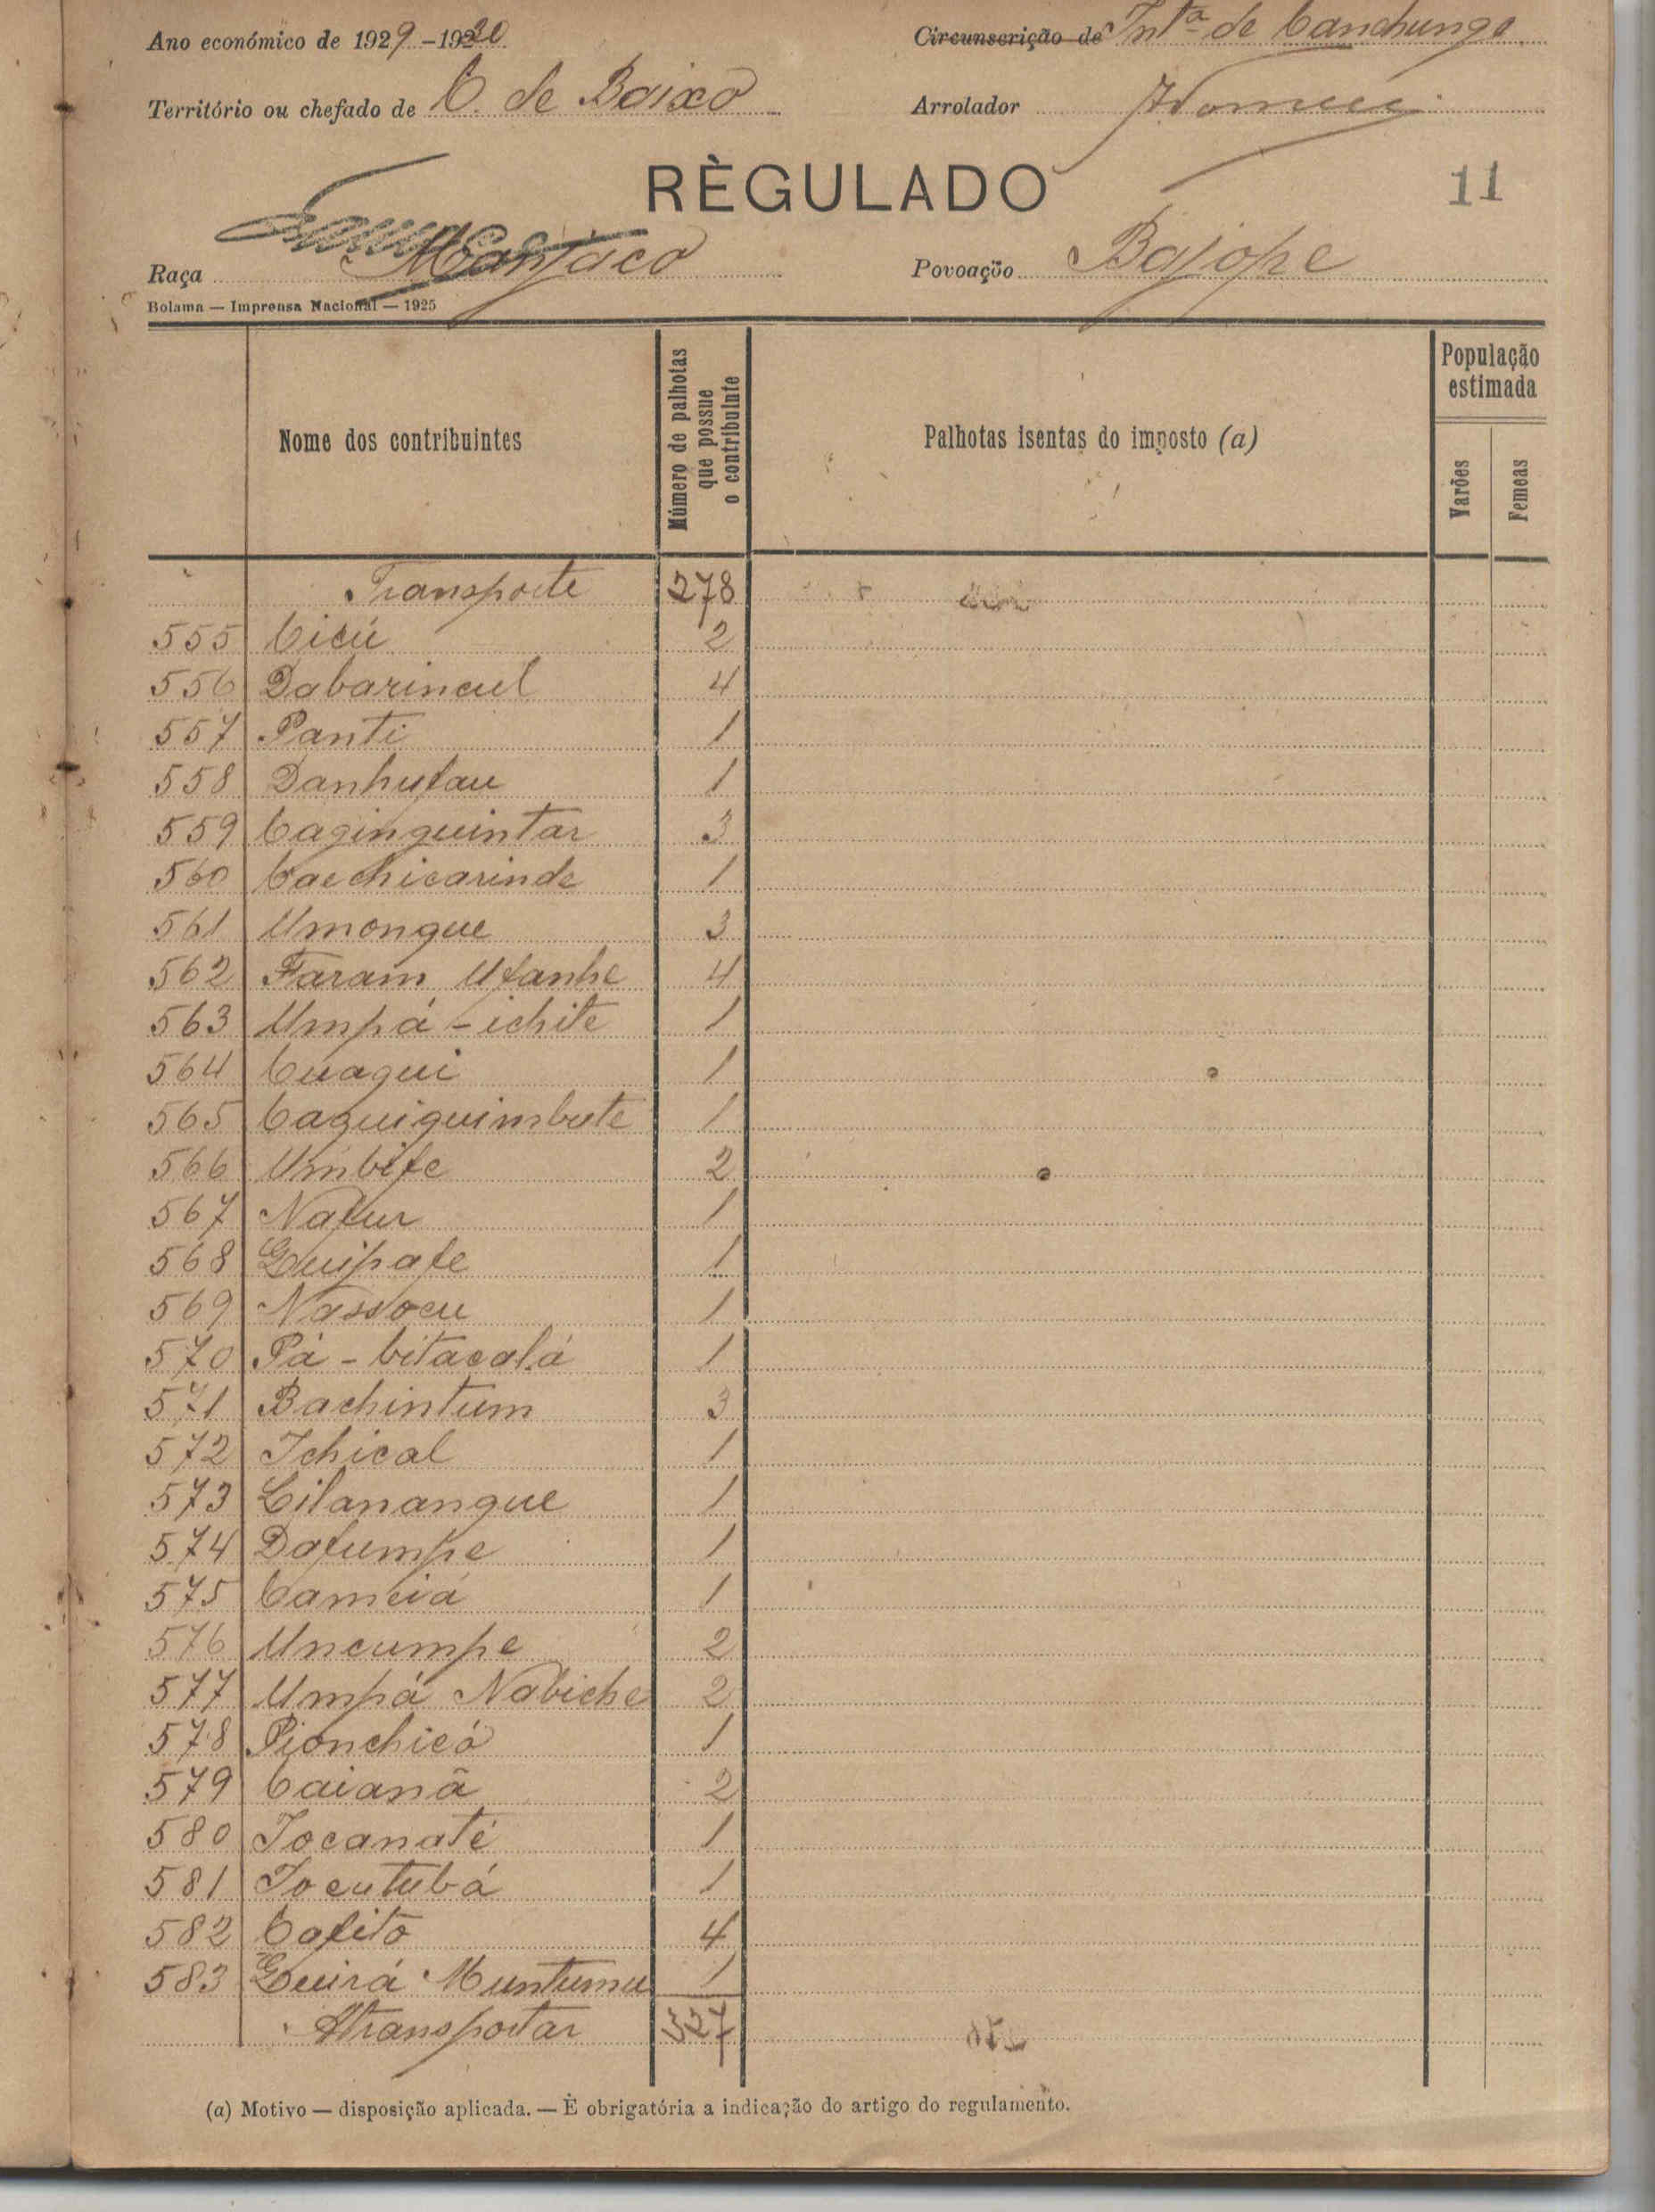 Ano económico de 1929-1930
Circunscrição de Intª de Canchungo
Território ou chefado de C. de Baixo
Arrolador
RÈGULADO
11
Raça Manjaco
Povoação Bajope
Bolama — Imprensa Nacional — 1925
Nome dos contribuintes
Número de palhotas que possue o contribuinte
Palhotas isentas do imposto (a)
População estimada
Varões
Femeas
Transporte 278
555 Cicú 2
556 Dabarincul 4
557 Panti 1
558 Danhufau 1
559 Caginguintar 3
560 Cacchicarinde 1
561 Umongue 3
562 Faram Ufanhe 4
563 Umpá-ichite 1
564 Cuagui 1
565 Caguiguimbute 1
566 Umbife 2
567 Nafur 1
568 Guipafe 1
569 Nassocu 1
570 Pá-bitacalá 1
571 Bachintum 3
572 Ichical 1
573 Cilanangue 1
574 Dafumpe 1
575 Cameiá 1
576 Uncumpe 2
577 Umpá Nabiche 2
578 Pionchicó 1
579 Caianã 2
580 Jocanaté 1
581 Jocutubá 1
582 Cafito 4
583 Guirá Muntumu 1
Atransportar 327
(a) Motivo — disposição aplicada. — È obrigatória a indicação do artigo do regulamento.